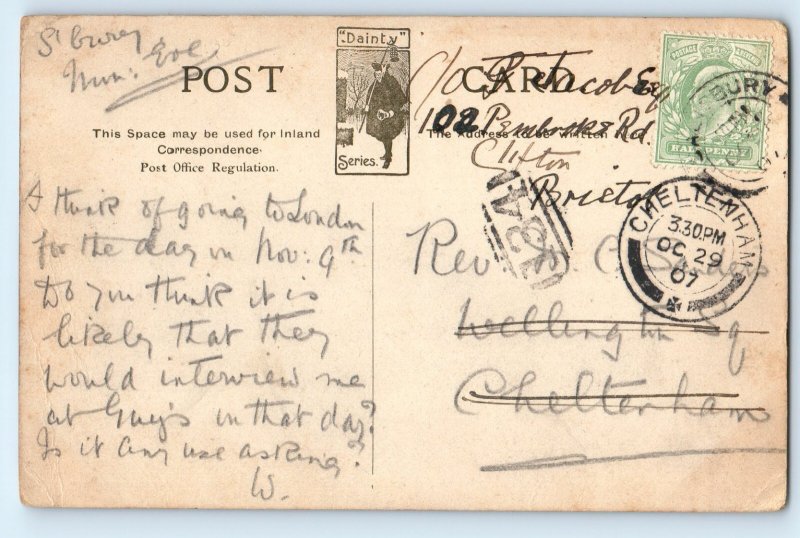 S'bury
Mon: Eve
POST CARD
"Dainty"
Series.
This Space may be used for Inland
Correspondence.
Post Office Regulation.
The Address to be written
I think of going to London
for the day on Nov: 9th
Do you think it is
likely that they
would interview me
at Guy's in that day?
Is it any use asking?
W.
c/o Jacob Esq
102 Pembroke Rd.
Clifton
Bristol
Rev C.
Wellington Sq
Cheltenham
POSTAGE
HALFPENNY
BURY
CHELTENHAM
3.30PM
OC 29
07